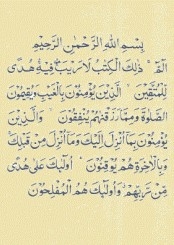 بِسْمِ اللهِ الرَّحْمٰنِ الرَّحِيْمِ
الٓمّٓ ۚ ذٰلِكَ الْكِتٰبُ لَا رَيْبَ ۛ فِيْهِ ۛ هُدًى
لِّلْمُتَّقِيْنَ ۙ الَّذِيْنَ يُؤْمِنُوْنَ بِالْغَيْبِ وَيُقِيْمُوْنَ
الصَّلٰوةَ وَمِمَّا رَزَقْنٰهُمْ يُنْفِقُوْنَ ۙ وَالَّذِيْنَ
يُؤْمِنُوْنَ بِمَآ اُنْزِلَ اِلَيْكَ وَمَآ اُنْزِلَ مِنْ قَبْلِكَ ۚ
وَبِالْاٰخِرَةِ هُمْ يُوْقِنُوْنَ ۗ اُولٰٓئِكَ عَلٰى هُدًى
مِّنْ رَّبِّهِمْ ۙ وَاُولٰٓئِكَ هُمُ الْمُفْلِحُوْنَ